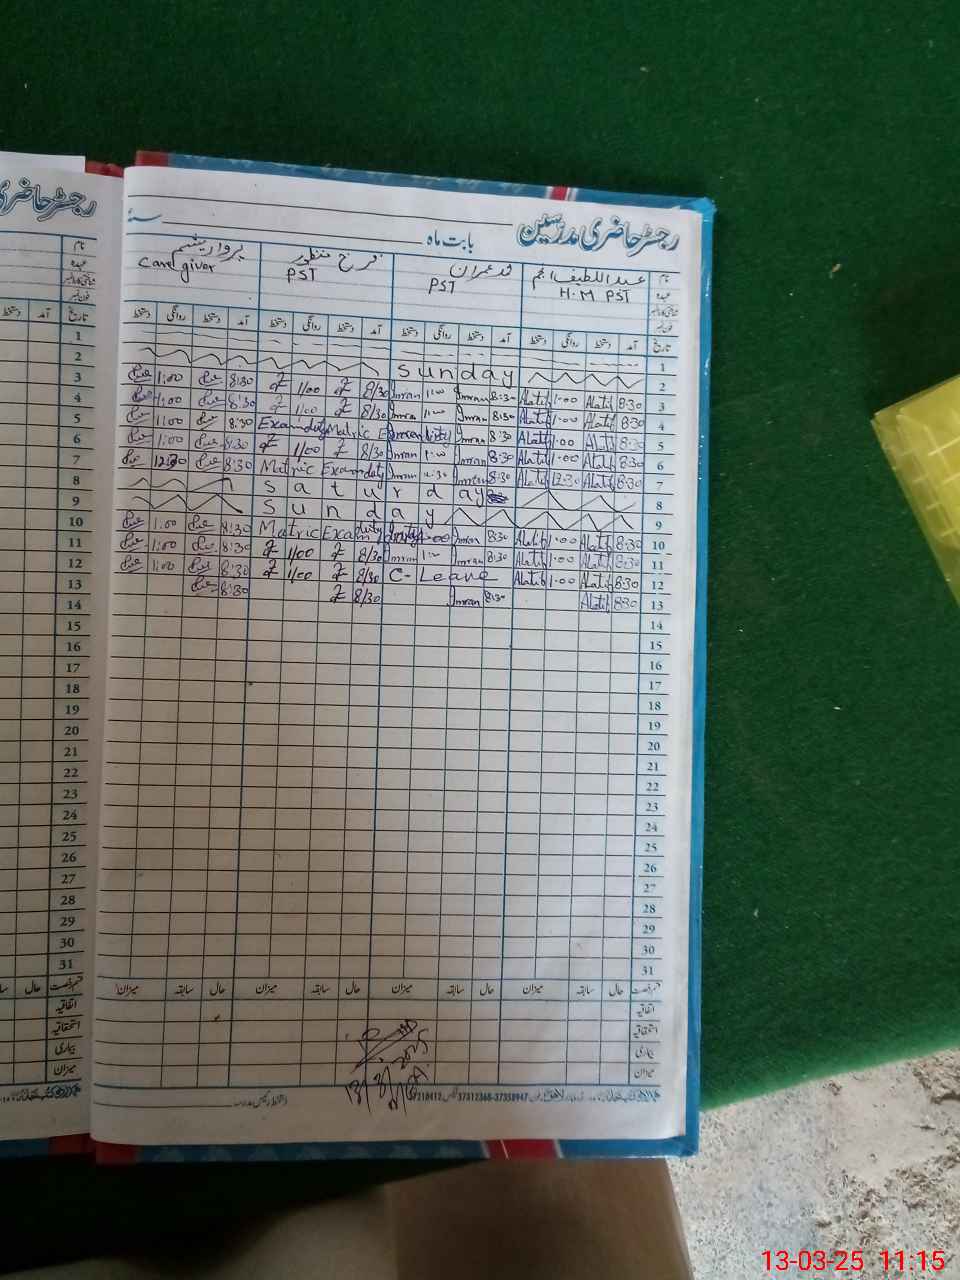 رجسٹر حاضری مدرسین
بابت ماہ سنہ
نام عبداللطیف انجم عمران فرخ منظور
عہدہ H.M PST PST PST Care giver
تاریخ آمد دستخط روانگی دستخط آمد دستخط روانگی دستخط آمد دستخط روانگی دستخط آمد دستخط روانگی دستخط
1
2 Sunday
3 8:30 Alatif 1:00 Alatif 8:30 Imran 1:00 Imran 8/30 1/00 8:30 1:00
4 8:30 Alatif 1:00 Alatif 8:30 Imran 1:00 Imran 8/30 1/00 8:30 1:00
5 8:30 Alatif 1:00 Alatif 8:30 Imran Exam duty Matric 8:30 1:00
6 8:30 Alatif 1:00 Alatif 8:30 Imran 1:00 Imran 8/30 1/00 8:30 1:00
7 8:30 Alatif 12:30 Alatif 8:30 Imran 12:30 Imran Matric Exam duty 8:30 12:30
8 Saturday
9 Sunday
10 8:30 Alatif 1:00 Alatif 8:30 Imran 1:00 Matric Exam duty 8:30 1:00
11 8:30 Alatif 1:00 Alatif 8:30 Imran 1:00 Imran 8/30 1/00 8:30 1:00
12 8:30 Alatif 1:00 Alatif C-Leave 8/30 1/00 8:30 1:00
13 8:30 Alatif 8:30 Imran 8/30 8:30
14
15
16
17
18
19
20
21
22
23
24
25
26
27
28
29
30
31
قسم رخصت حال سابقہ میزان حال سابقہ میزان حال سابقہ میزان حال سابقہ میزان
اتفاقیہ
استحقاقیہ
بیماری
میزان
13/3/2025
37312368-37358947
13-03-25 11:15